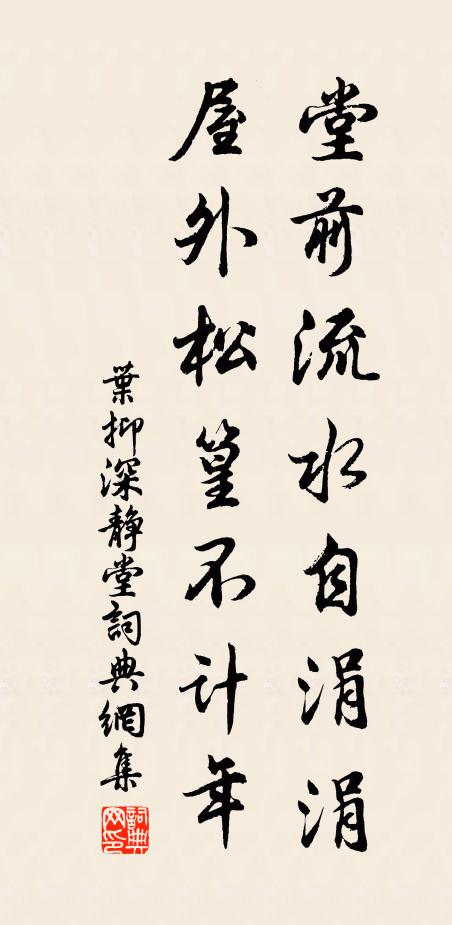 堂前流水自涓涓
屋外松篁不计年
葉抑深静堂詞典網集
詞典網印